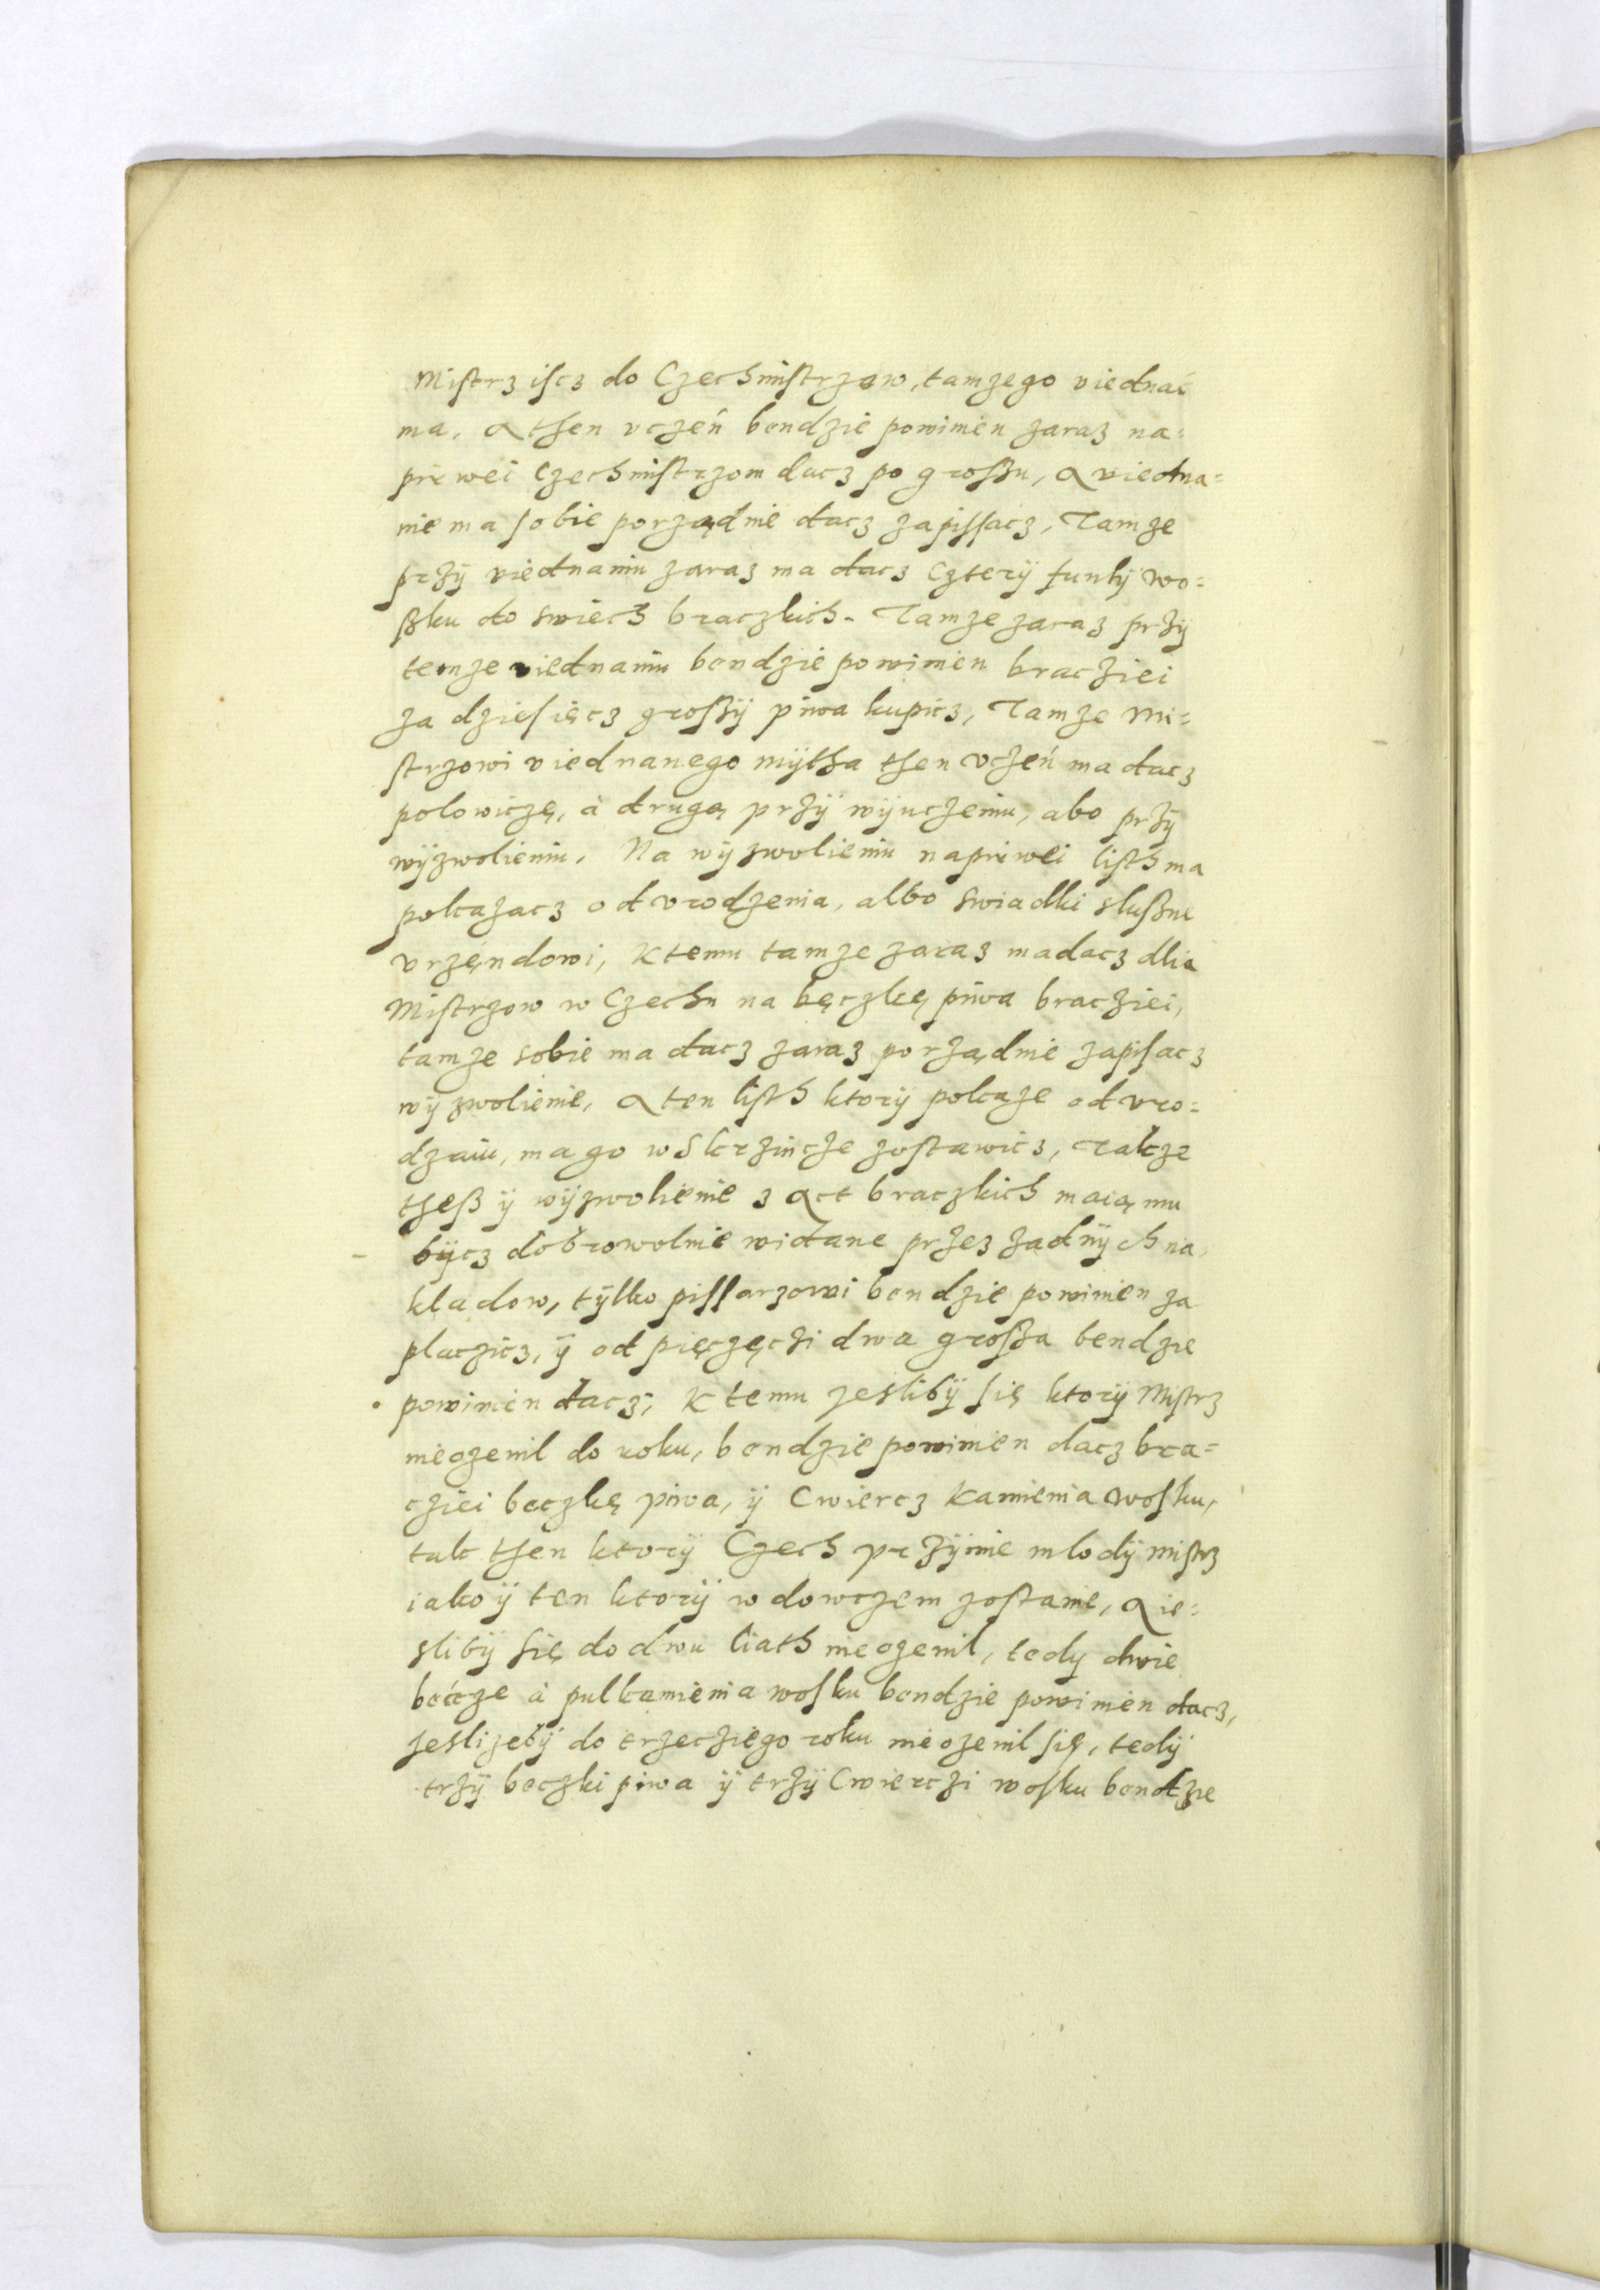 Mistrz iscz do Czechmistrzow, tamzego viednać
ma. A then vczeń bendzie powinien zaraz na=
pirwei Czechmistrzom dacz po grosßu, A viedna=
nie ma sobie porządnie dacz zapissacz, Tamze
przÿ viednaniu zaraz ma dacz Czterÿ funtÿ wo=
ßku do swiech braczkich. Tamze zaraz przÿ
temze viednaniu bendzie powinien bracziei
za dziesięcz grosßÿ piwa kupicz, Tamze Mi=
strzowi viednanego mÿtha then vczeń ma dacz
polowiczę, à drugę przÿ wÿuczeniu, abo przÿ
wÿzwolieniu. Na wÿzwolieniu napirwei listh ma
pokazacz od vrodzenia, albo swiadki slußne
vrzęndowi, K temu tamze zaraz ma dacz dlia
Mistrzow w Czechu na bęczkę piwa bracziei,
tamze sobie ma dacz zaraz porządnie zapisacz
wÿzwolienie, A ten listh ktorÿ pokaze od vro=
dzaiu, ma go w Skrzincze zostawicz, Takze
theß ÿ wÿzwolienie z Act braczkich maią mu
bÿcz dobrowolnie widane przez zadnÿch na
kladow, tÿlko pissarzowi bendzie powinien za
placzicz, ÿ od pięczęczi dwa grosßa bendzie
powinien dacz, K temu jeslibÿ się ktorÿ Mistrz
nieozenil do roku, bendzie powinien dacz bra=
cziei beczkę piwa, ÿ Cwiercz Kamienia wosku,
tak then ktorÿ Czech przÿmie mlodÿ mistrz
iako ÿ ten ktorÿ wdowczem zostanie, A ie=
slibÿ się do dwu liath nieozenil, tedy dwie
beczce à pulkamienia wosku bendzie powinien dacz,
jeslizebÿ do trzecziego roku nieozenil się, tedÿ
trzÿ beczki piwa ÿ trzÿ Cwierczi wosku bendzie